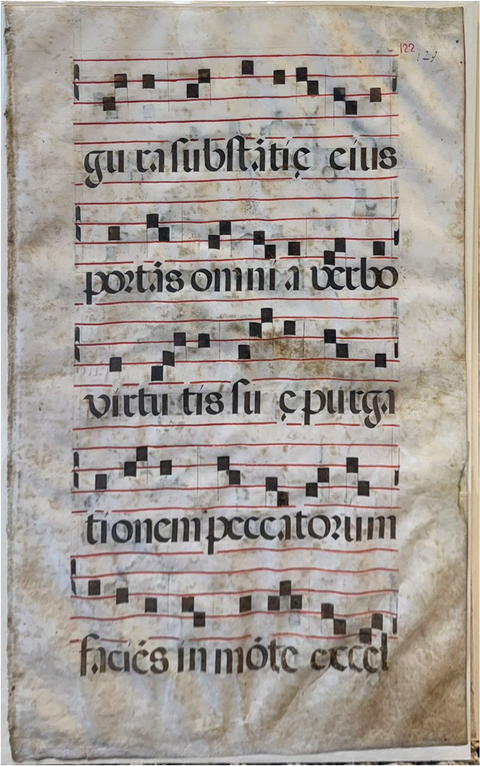 122
gu ra substātię eius
portās omni a verbo
virtu tis su ę purga
tionem peccatorum
faciēs in mōte excel